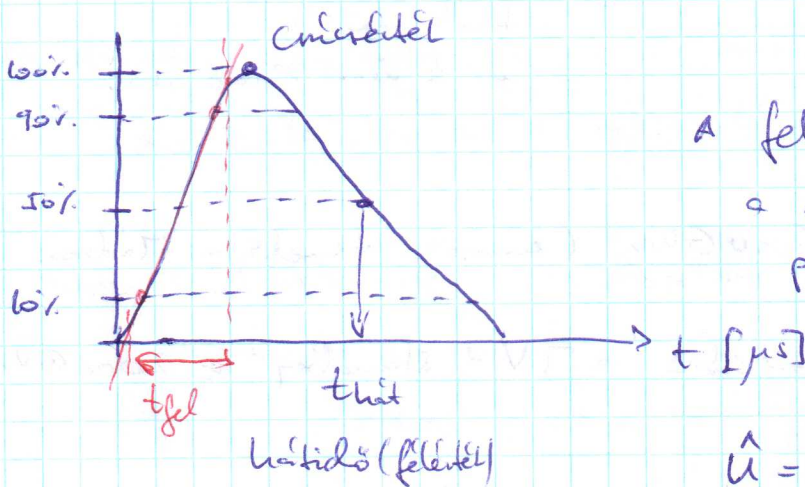 Csúcsérték
100%
90%
A fel
a
50%
p
10%
t [µs]
tfel
thát
hátidő (félérték)
û =